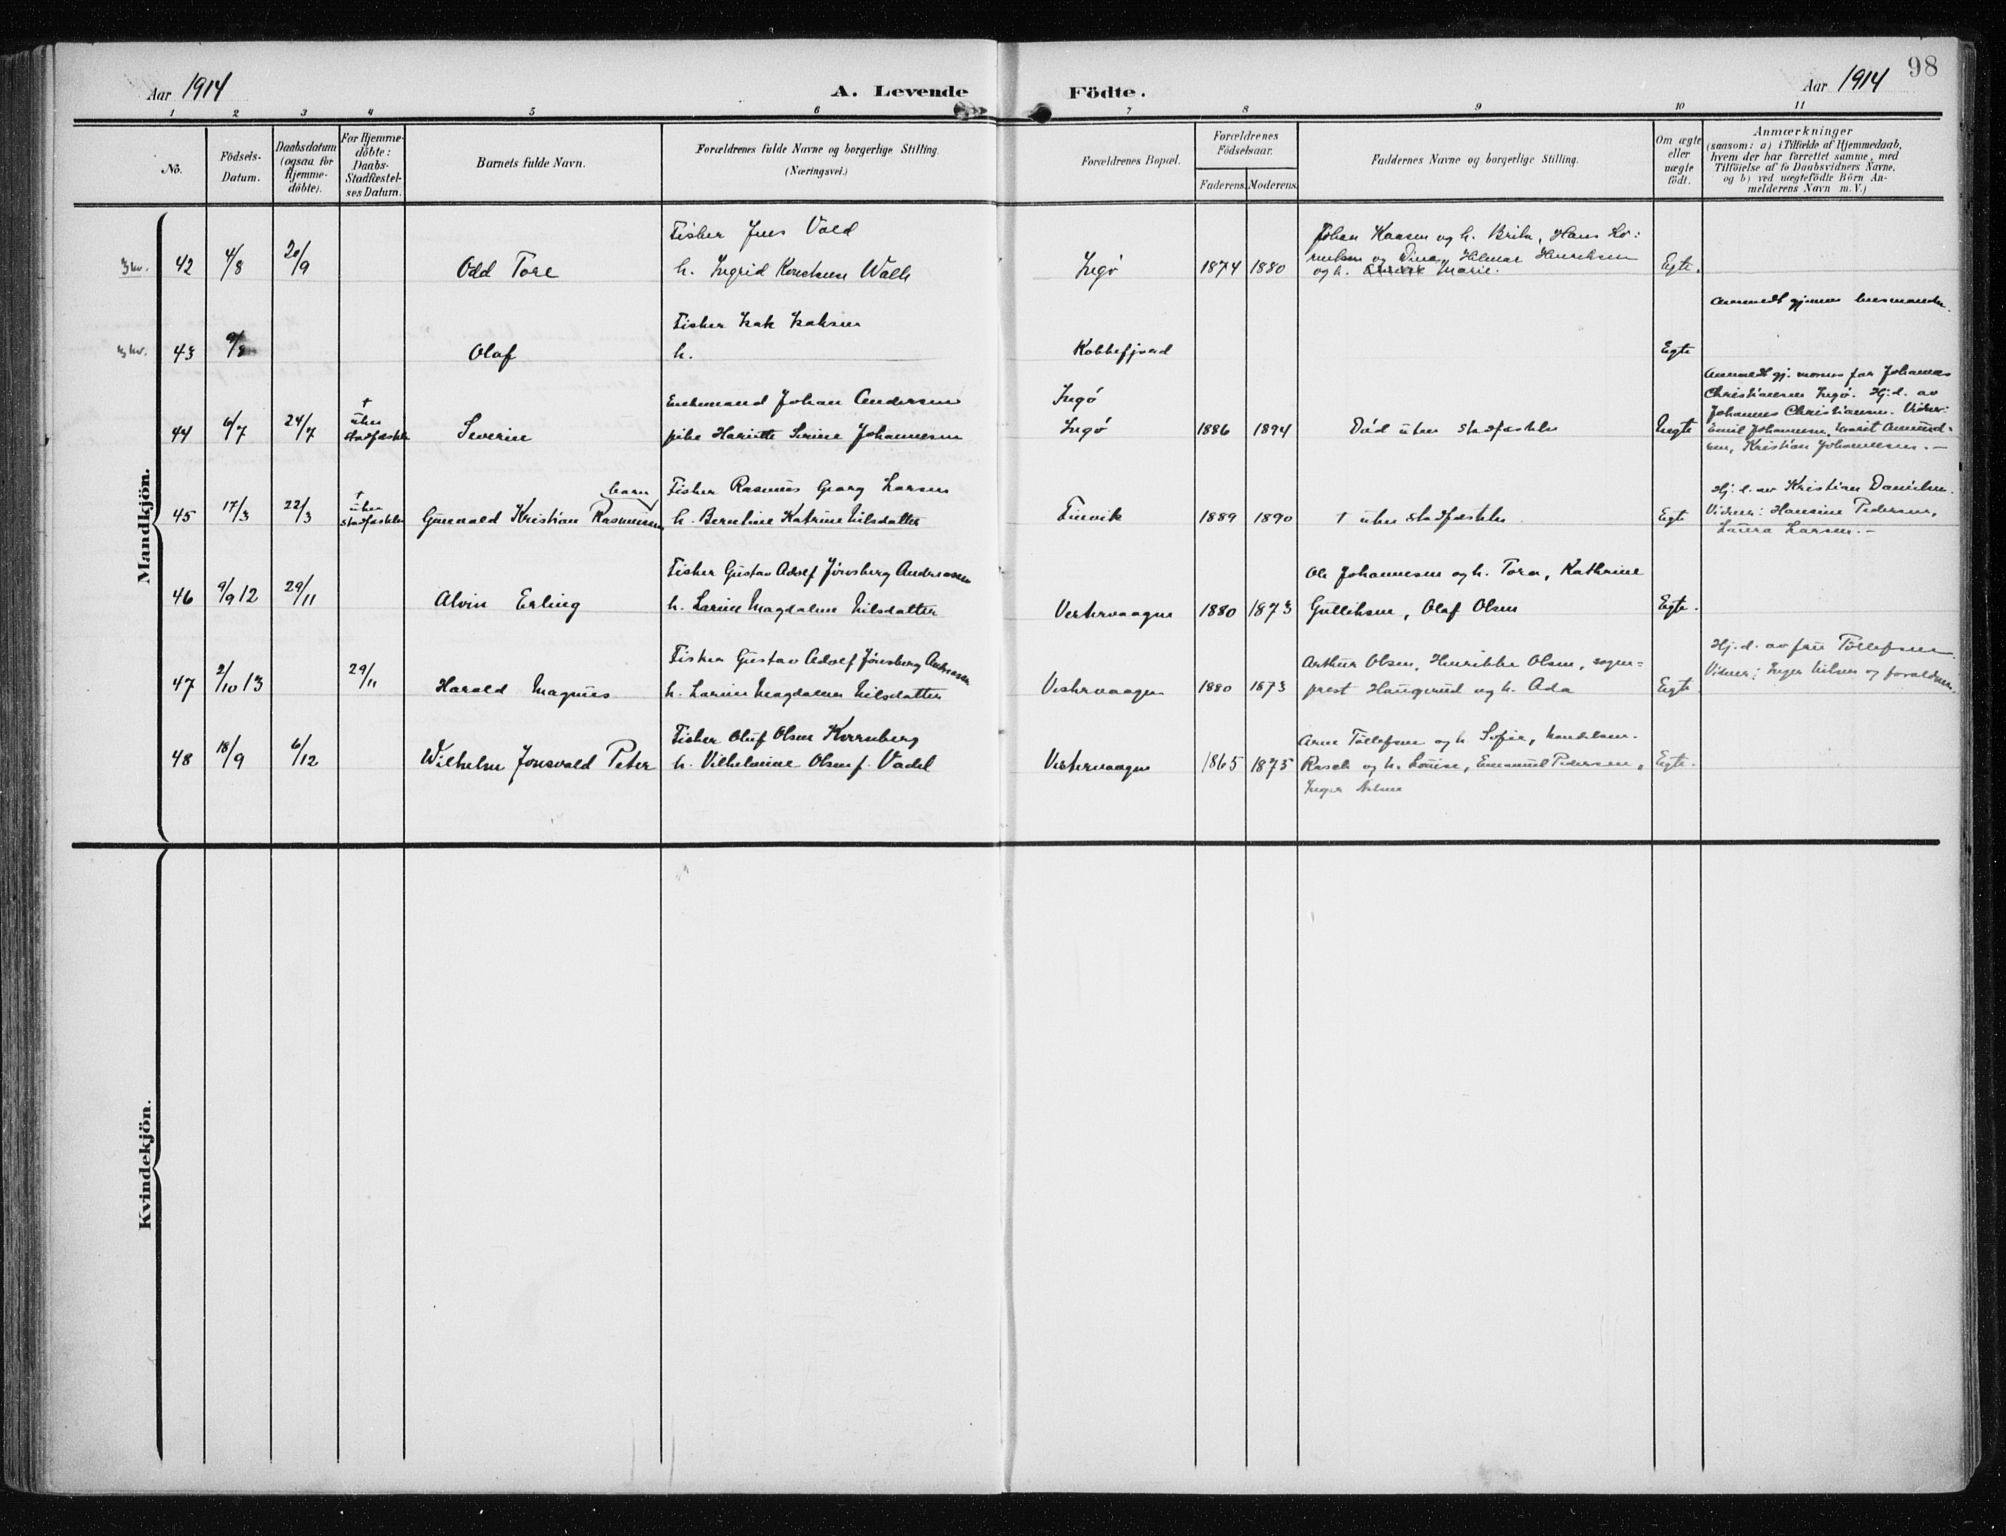 98
Aar 1914 A. Levende Födte. Aar 1914
1 2 3 4 5 6 7 8 9 10 11
No.
Födsels-
Datum.
Daabsdatum
(ogsaa for
Hjemme-
döbte).
For Hjemme-
döbte:
Daabs-
Stadfæstel-
ses Datum.
Barnets fulde Navn.
Forældrenes fulde Navne og borgerlige Stilling.
(Næringsvei.)
Forældrenes Bopæl.
Forældrenes
Födselsaar.
Faderens. Moderens.
Faddernes Navne og borgerlige Stilling.
Om ægte
eller
uægte
födt.
Anmærkninger
(saasom: a) i Tilfælde af Hjemmedaab,
hvem der har forrettet samme, med
Tilföielse af to Daabsvidners Navne,
og b) ved uægtefödte Börn An-
melderens Navn m. V.)
Mandkjön.
42 4/8 20/9 Odd Tore
Fisker Jens Vald
h. Ingrid Walle
Ingø 1874 1880
Johan og h. Brita, Hans
og Dina, Hilmar Henriksen
og h. Marie.
Egte.
43 Olaf
Fisker Isak Isaksen
h.
Kobbefjord
Egte
Anmeldt gjennem lensmanden.
44 6/7 24/7
†
uten
stadfæstelse
Severin
Enkemand Johan Andersen
pike Serine Johannesen
Ingø
Ingø 1886 1894 Död uten stadfæstelse Uegte
Anmeldt gj. mores far Johannes
Christiansen Ingø. Hj.d. av
Johannes Christiansen. Vidner:
Emil Johannesen,
Kristian Johannesen. —
45 17/3 22/3
†
uten
stadfæstelse
barn
Gunvald Kristian Rasmussen
Fisker Rasmus Georg Larsen
h. Berntine Katrine Nilsdatter
Finvik 1889 1890 † uten stadfæstelse. Egte
Hj.d. av Kristian Danielsen.
Vidner: Hansine Pedersen,
Laura Larsen. —
46 9/9 12 29/11 Alvin Erling
Fisker Gustav Adolf Jønsberg Andreassen
h. Larine Magdalene Nilsdatter
1880 1873
Ole Johannesen og h. Tora, Kathrine
Gulliksen, Olaf Olsen
Egte.
47 2/10 13 29/11 Harald Magnus
Fisker Gustav Adolf Jønsberg Andreassen
h. Larine Magdalene Nilsdatter
1880 1873
Arthur Olsen, Henrikke Olsen, sogne-
prest Haugerud og h. Ada
Egte.
Hj.d. av fru Tollefsen.
Vidner: Inger Nilsen og forældrene.
48 18/9 6/12 Wilhelm Jonsvald Peter
Fisker Oluf Olsen Kvernberg
h. Vilhelmine Olsen f. Vadel
1865 1875
Arne Tollefsen og h Sofie,
og h. Louise, Emanuel Pedersen,
Inger Nilsen
Egte.
Kvindekjön.